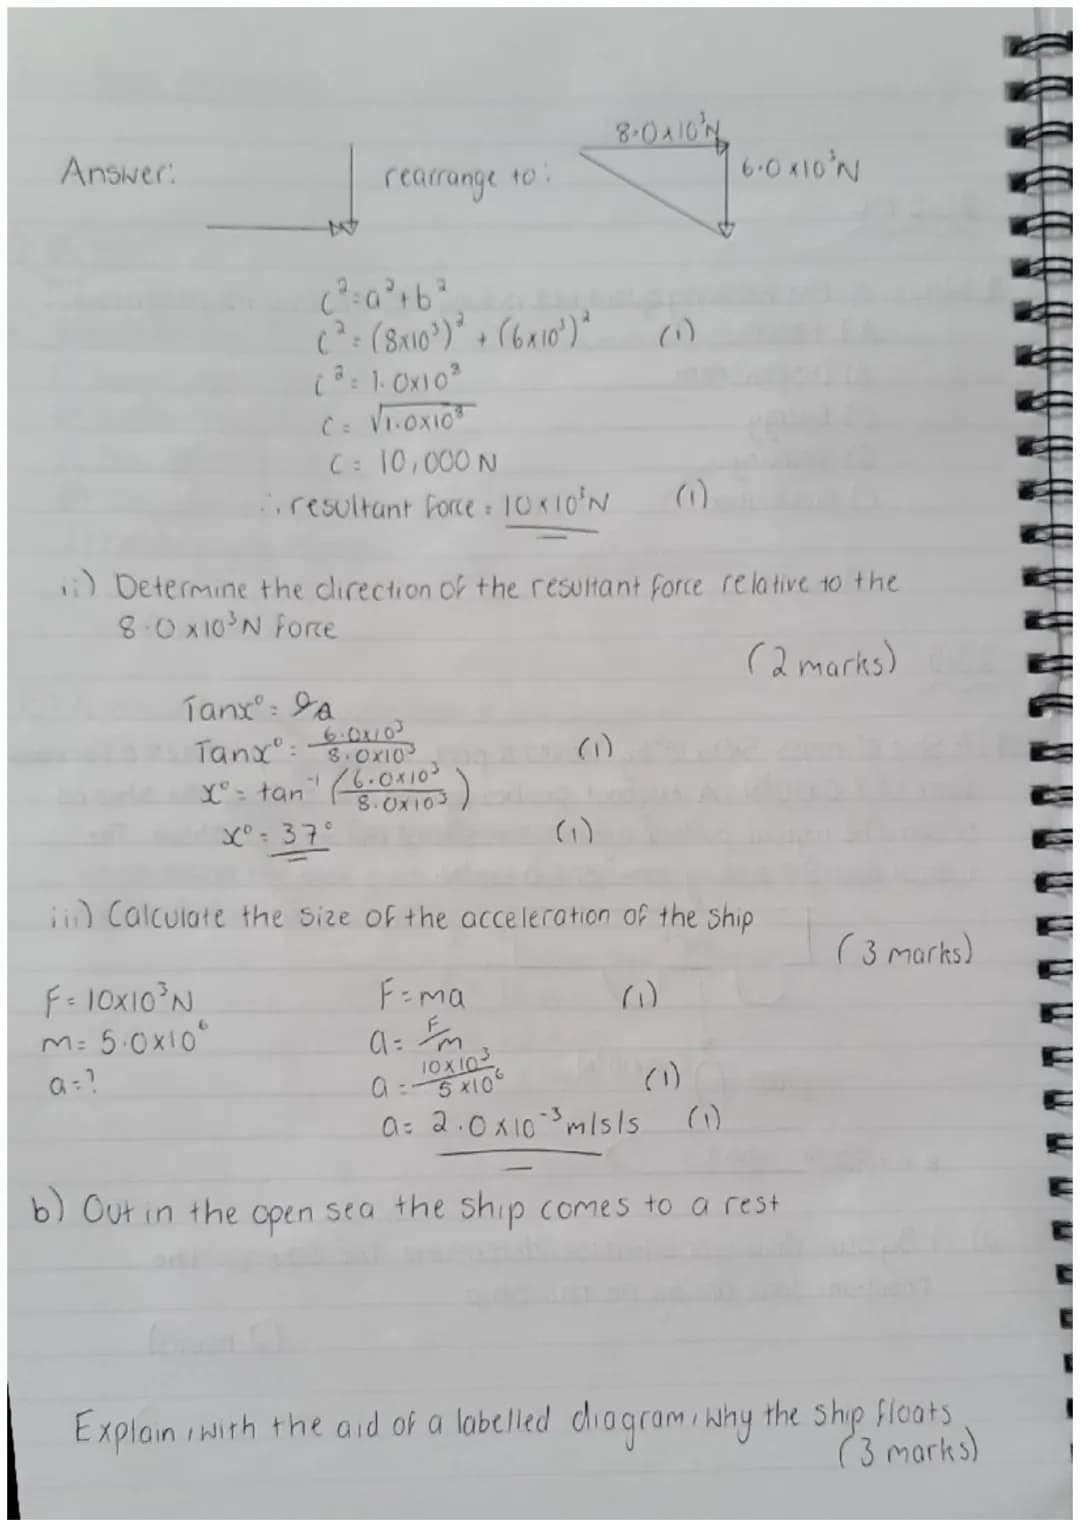 Answer: rearrange to: 8.0x10³N 6.0x10³N
c²=a²+b²
c²=(8x10³)²+(6x10³)² (1)
c²=1.0x10⁸
c=√1.0x10⁸
c=10,000N
∴ resultant force = 10x10³N (1)
ii) Determine the direction of the resultant force relative to the
8.0x10³N force
(2 marks)
Tanx°=O/A
Tanx°=6.0x10³/8.0x10³ (1)
x°=tan⁻¹(6.0x10³/8.0x10³)
x°=37° (1)
iii) Calculate the size of the acceleration of the ship
(3 marks)
F=10x10³N F=ma (1)
m=5.0x10⁶ a=F/m
a=? a=10x10³/5x10⁶ (1)
a=2.0x10⁻³m/s/s (1)
b) Out in the open sea the ship comes to a rest
Explain, with the aid of a labelled diagram, why the ship floats
(3 marks)